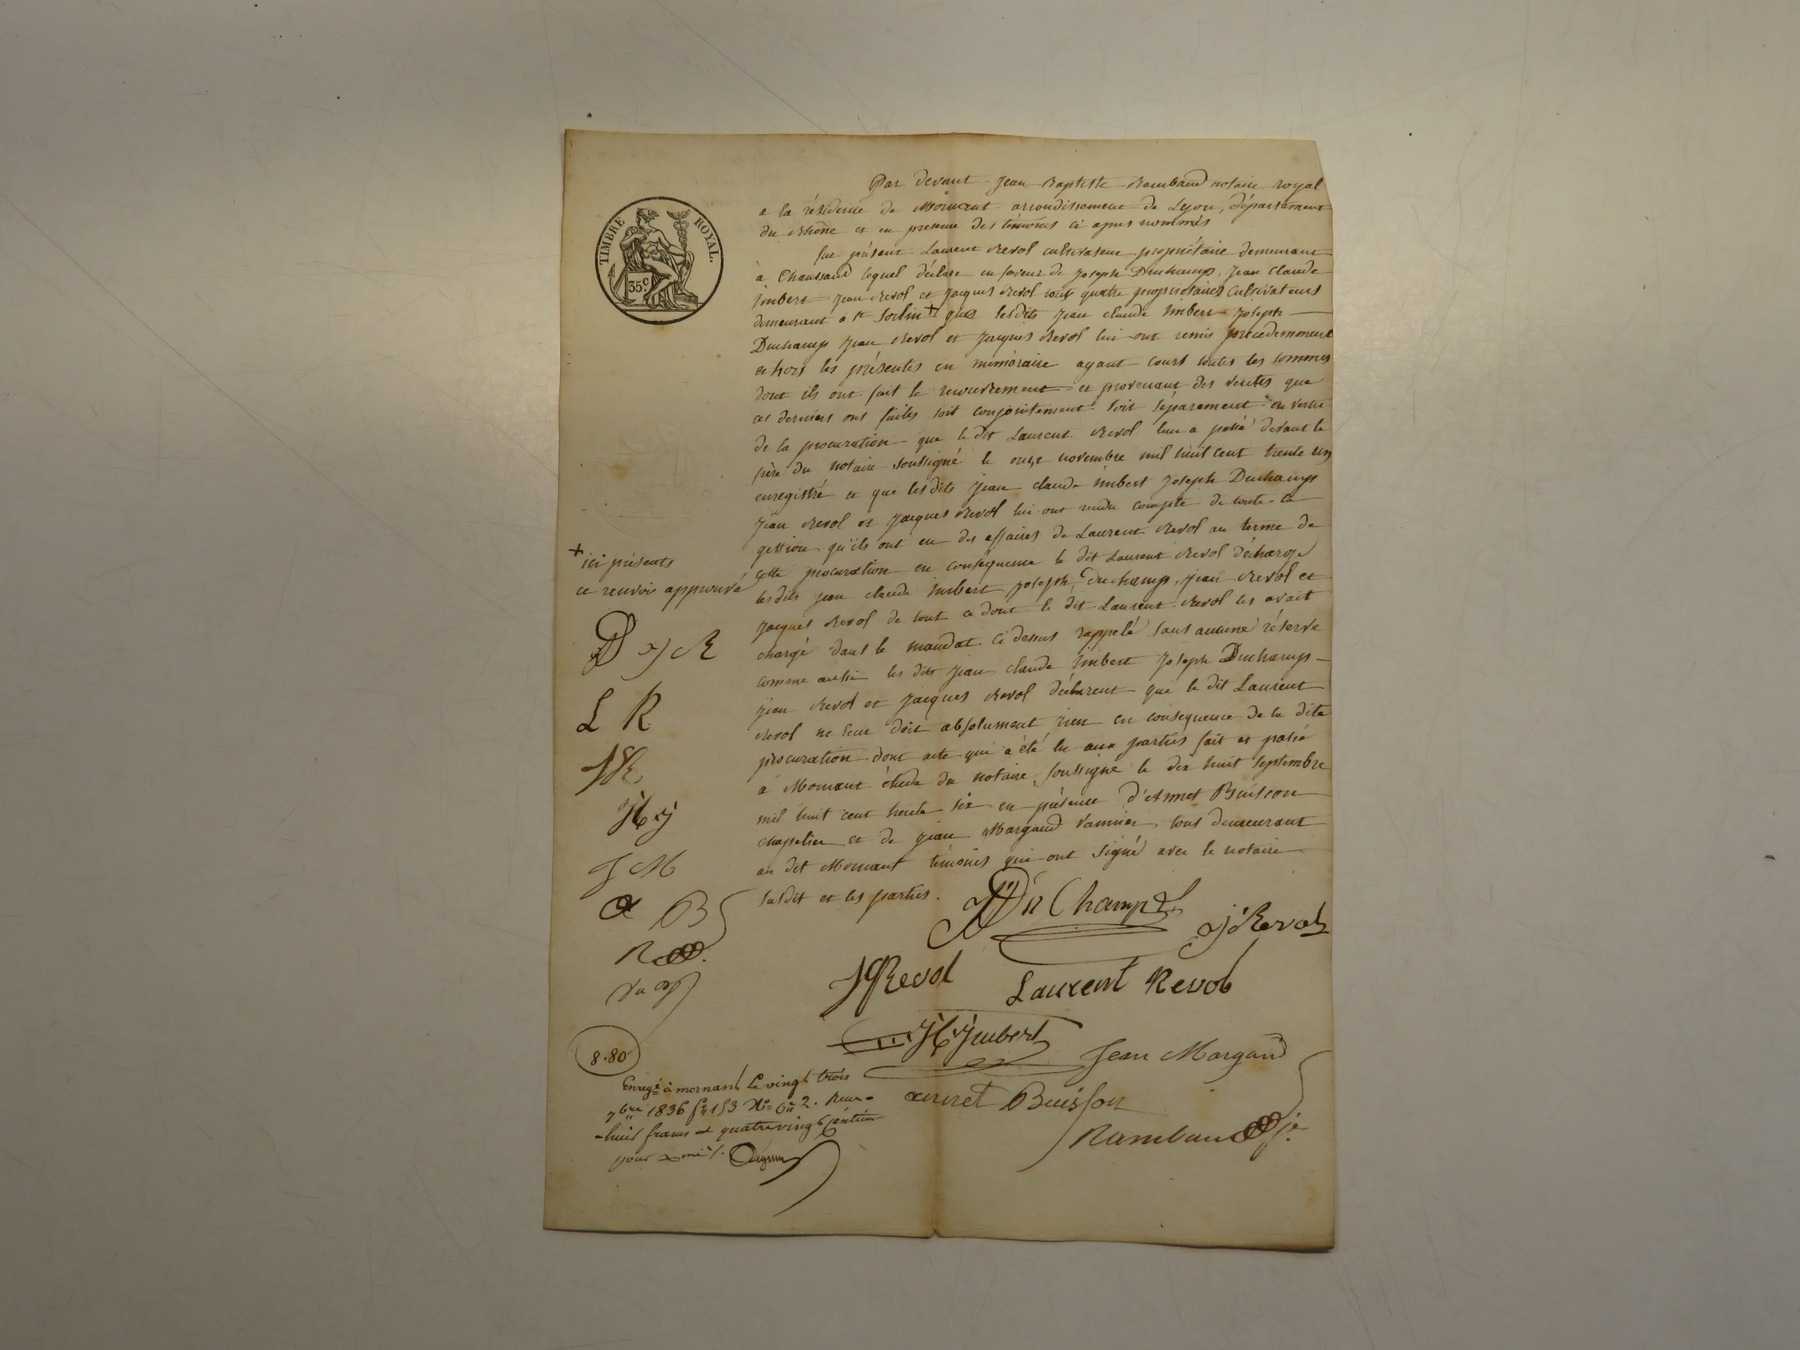 TIMBRE ROYAL.
35 c.
Par devant Jean Baptiste Rambaud notaire royal
a la résidence de Mornant arrondissement de Lyon, département
du Rhône et en presence des témoins ci apres nommés
fut présent Laurent Revol cultivateur propriétaire demeurant
à Chaussand lequel déclare en faveur de Joseph Duchamp, Jean Claude
Imbert Jean Revol et Jacques Revol tout quatre propriétaires cultivateurs
demeurant a St Sorlin + que lesdits Jean Claude Imbert Joseph
Duchamp Jean Revol et Jacques Revol lui ont remis précedemment
et hors les présentes en numéraire ayant cours toutes les sommes
dont ils ont fait le recouvrement et provenant des ventes que
ces derniers ont faites soit conjointement soit séparement en vertu
de la procuration que le dit Laurent Revol leur a passé devant le
père du notaire soussigné le onze novembre mil huit cent trente un
enregistré et que lesdits Jean Claude Imbert Joseph Duchamp
Jean Revol et Jacques Revol lui ont rendu compte de toute la
gestion qu'ils ont eu des affaires de Laurent Revol au terme de
cette procuration en conséquence le dit Laurent Revol décharge
lesdits Jean Claude Imbert Joseph Duchamp, Jean Revol et
Jacques Revol de tout ce dont le dit Laurent Revol les avait
chargé dans le mandat ci dessus rappelé sans aucune réserve
comme aussi les dits Jean Claude Imbert Joseph Duchamp
Jean Revol et Jacques Revol déclarent que le dit Laurent
Revol ne leur doit absolument rien en conséquence de la dite
procuration dont acte qui a été lu aux parties fait et passé
à Mornant étude du notaire soussigné le dix huit septembre
mil huit cent trente six en présence d'Annet Buisson
chapelier et de Jean Margaud vannier tous demeurant
au dit Mornant témoins qui ont signé avec le notaire
susdit et les parties.
+ ici présents
ce renvoi approuvé
L R
JR
J M
a B
R
JDuChamp
J Revol
JRevol
Laurent Revol
Imbert
Jean Margaud
annet Buisson
Rambaud
8.80
Enregé à mornant le vingt trois
7bre 1836 fo 153 Ro
huit francs et quatrevingt centimes
pour